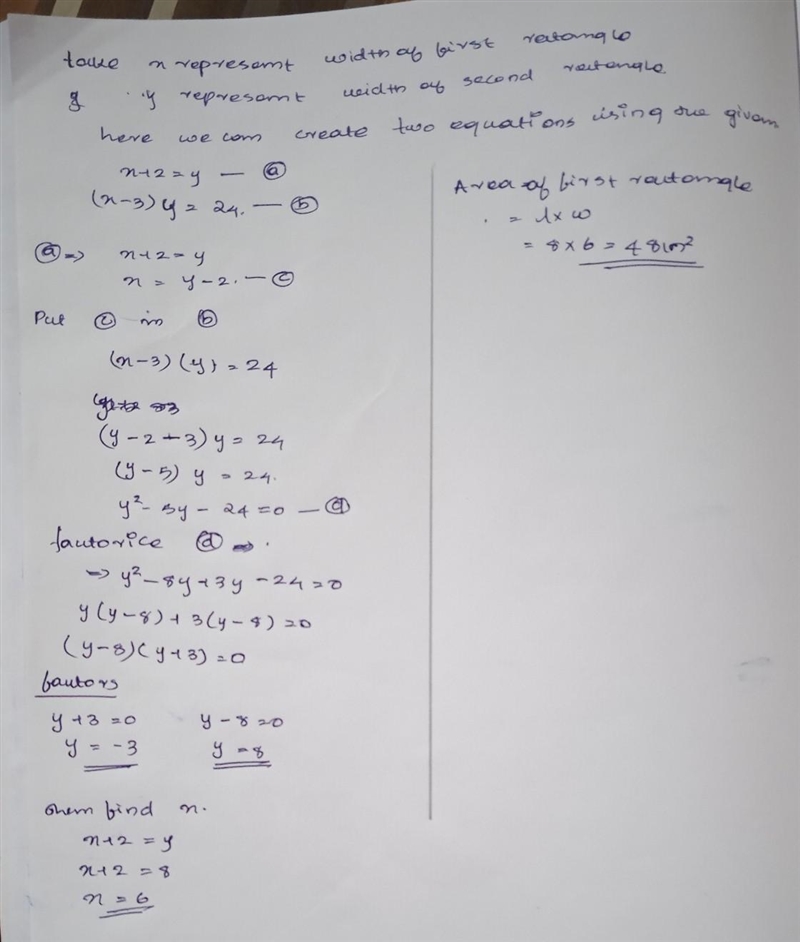 take x represent width of first rectangle
y represent width of second rectangle
here we can create two equations using the given
x+2=y — ⓐ
(x-3)y = 24. — ⓑ
ⓐ => x+2=y
x = y-2. — ⓒ
Put ⓒ in ⓑ
(x-3)(y) = 24
(y-2-3)y = 24
(y-5) y = 24.
y²-5y-24=0 — ⓓ
factorice ⓓ => .
=> y²-8y+3y-24=0
y(y-8)+3(y-8)=0
(y-8)(y+3)=0
factors
y+3=0 y-8=0
y = -3 y = 8
then find x.
x+2=y
x+2=8
x = 6
Area of first rectangle
= l×w
= 8×6 = 48cm²